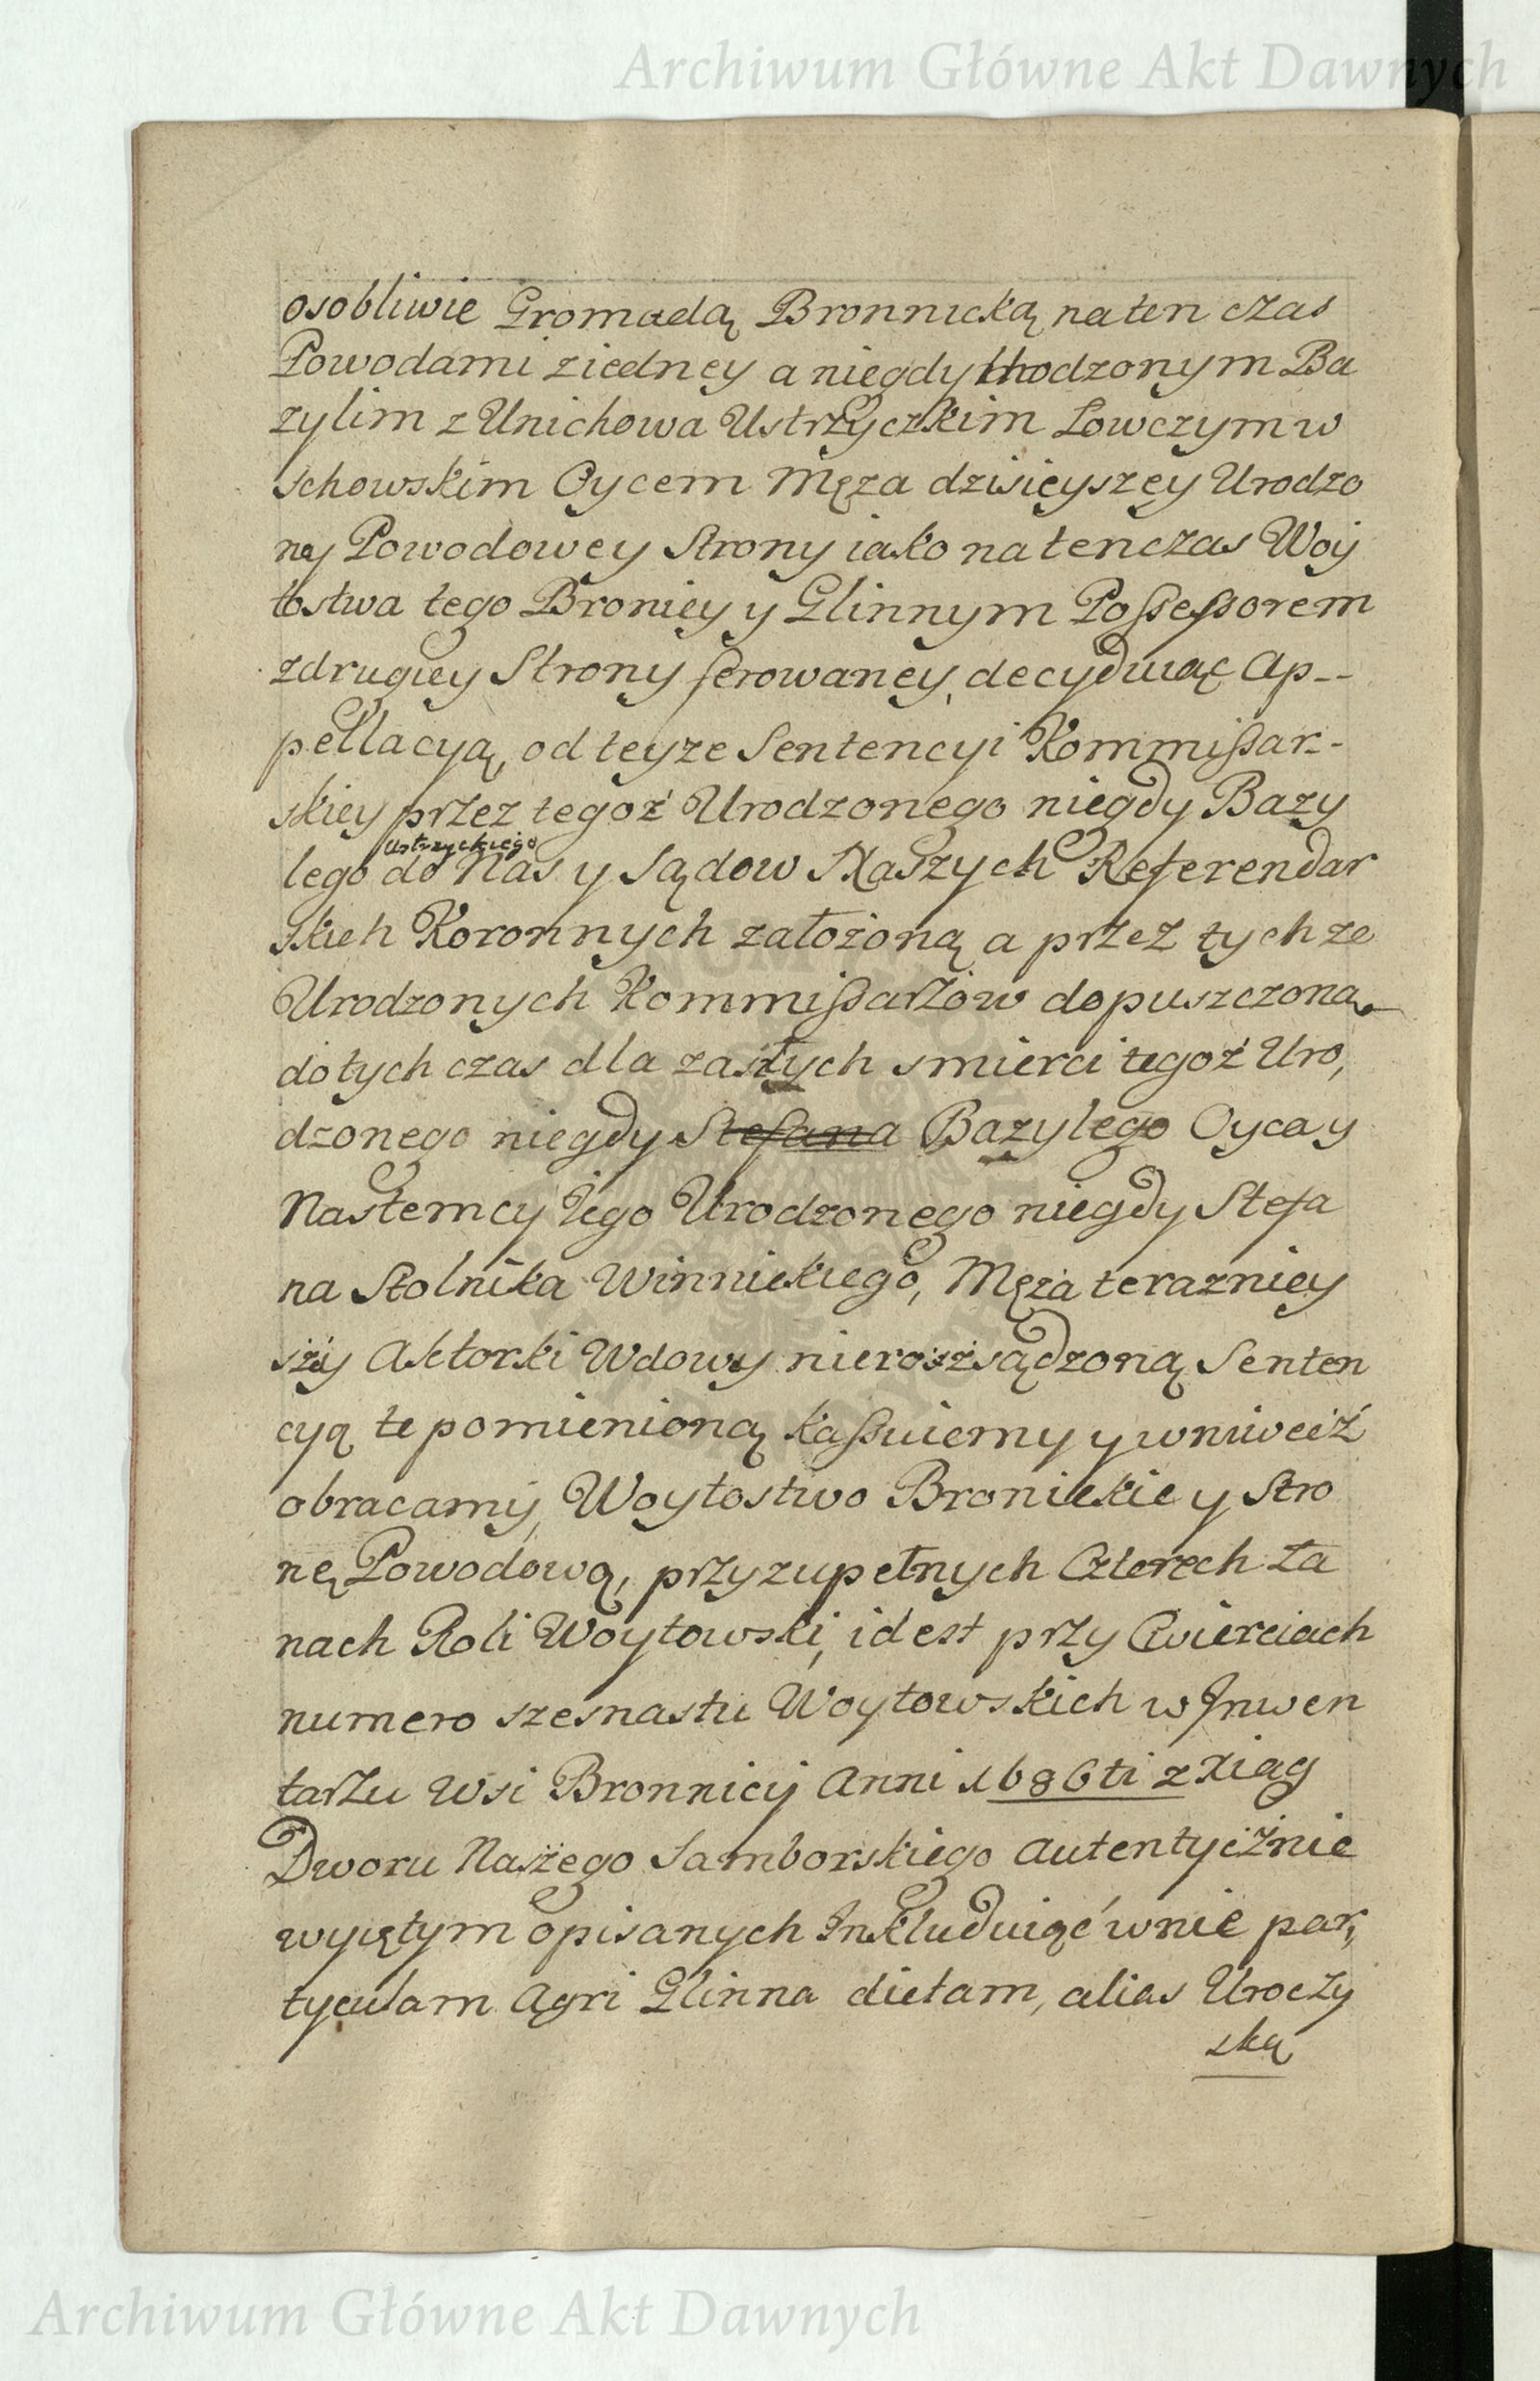 Archiwum Główne Akt Dawnych
osobliwie Gromadą Bronnicką na ten czas
Powodami ziedney a niegdy Urodzonym Ba
zylim z Unichowa Ustrzyczkim Łowczym w
schowskim Oycem Męza dzisieyszey Urodzo
ney Powodowey Strony iako na tenczas Woy
tostwa tego Broniey y Glinnym Possessorem
zdrugiey Strony ferowaney, decyduiąc Ap--
pellacyą, od teyze Sentencyi Kommissar-
skiey przez tegoż Urodzonego niegdy Bazy
Ustrzyckiego
lego do Nas y Sądow Naszych Referendar
skich Koronnych założoną a przez tychze
Urodzonych Kommissarzow dopuszczoną
dotych czas dla zaszłych smierci tegoż Uro,
dzonego niegdy Stefana Bazylego Oyca y
Nastemcy Iego Urodzonego niegdy Stefa
na Stolnika Winnickiego, Męża terazniey
szy Aktorki Wdowy nierozsądzoną Senten
cyą te pomienioną kassuiemy y wniwecż
obracamy, Woytostwo Bronickie y Stro
nę Powodową, przy zupełnych Czterech Ła
nach Roli Woytowski, id est przy Cwierciach
numero szesnastu Woytowskich w Inwen
tarzu Wsi Bronnicy Anni 1686ti z Xiąg
Dworu Naszego Samborskiego autentycżnie
wyiętym opisanych Inkluduiąc wnie par,
tyculam Agri Glinna dictam, alias Uroczy
ską
Archiwum Główne Akt Dawnych